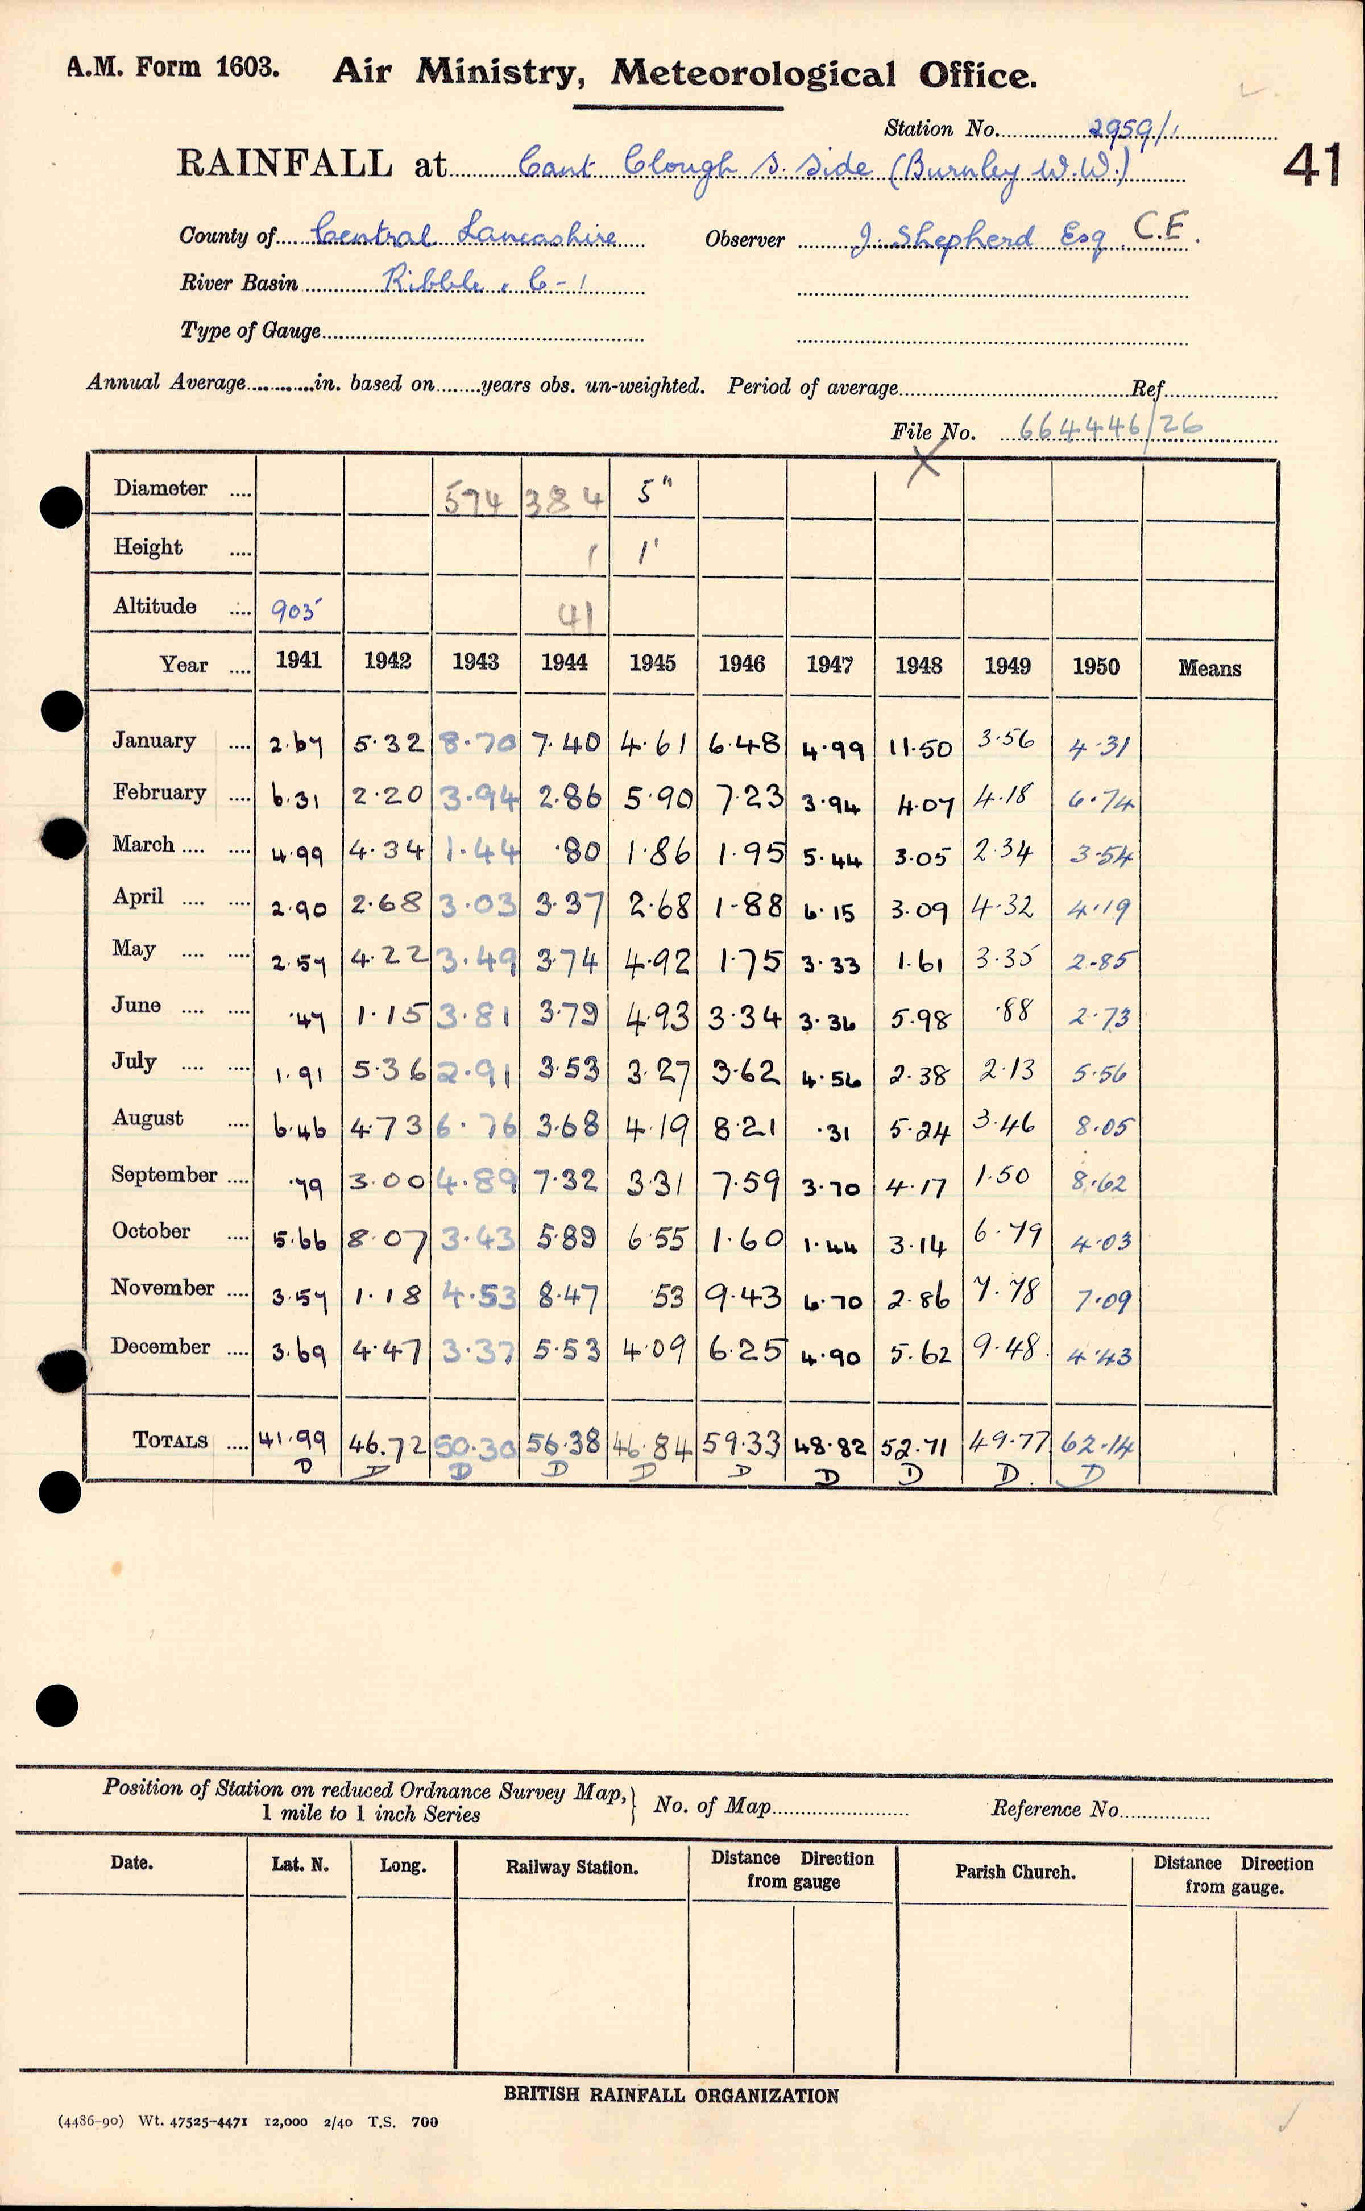 A.M. Form 1603. Air Ministry, Meteorological Office.
Station No. 2959/1
RAINFALL at Cant Clough S. Side (Burnley W.W.) 41
County of Central Lancashire Observer J. Shepherd Esq. C.E.
River Basin Ribble. C-1
Type of Gauge
Annual Average in. based on years obs. un-weighted. Period of average Ref.
File No. 664446/26
X
Diameter 574 384 5"
Height 1 1'
Altitude 905 41
Year 1941 1942 1943 1944 1945 1946 1947 1948 1949 1950 Means
January 2.67 5.32 8.70 7.40 4.61 6.48 4.99 11.50 3.56 4.31
February 6.31 2.20 3.94 2.86 5.90 7.23 3.94 4.07 4.18 6.74
March 4.99 4.34 1.44 .80 1.86 1.95 5.44 3.05 2.34 3.54
April 2.90 2.68 3.03 3.37 2.68 1.88 6.15 3.09 4.32 4.19
May 2.57 4.22 3.49 3.74 4.92 1.75 3.33 1.61 3.35 2.85
June .47 1.15 3.81 3.79 4.93 3.34 3.36 5.98 .88 2.73
July 1.91 5.36 2.91 3.53 3.27 3.62 4.56 2.38 2.13 5.56
August 6.46 4.73 6.76 3.68 4.19 8.21 .31 5.24 3.46 8.05
September .79 3.00 4.89 7.32 3.31 7.59 3.70 4.17 1.50 8.62
October 5.66 8.07 3.43 5.89 6.55 1.60 1.44 3.14 6.79 4.03
November 3.57 1.18 4.53 8.47 53 9.43 6.70 2.86 7.78 7.09
December 3.69 4.47 3.37 5.53 4.09 6.25 4.90 5.62 9.48 4.43
TOTALS 41.99 46.72 50.30 56.38 46.84 59.33 48.82 52.71 49.77 62.14
D D D D D D D D D D
Position of Station on reduced Ordnance Survey Map,} No. of Map Reference No.
1 mile to 1 inch Series
Date. Lat. N. Long. Railway Station. Distance from gauge Direction Parish Church. Distance Direction from gauge.
BRITISH RAINFALL ORGANIZATION
(4486-90) Wt. 47525-4471 12,000 2/40 T.S. 700